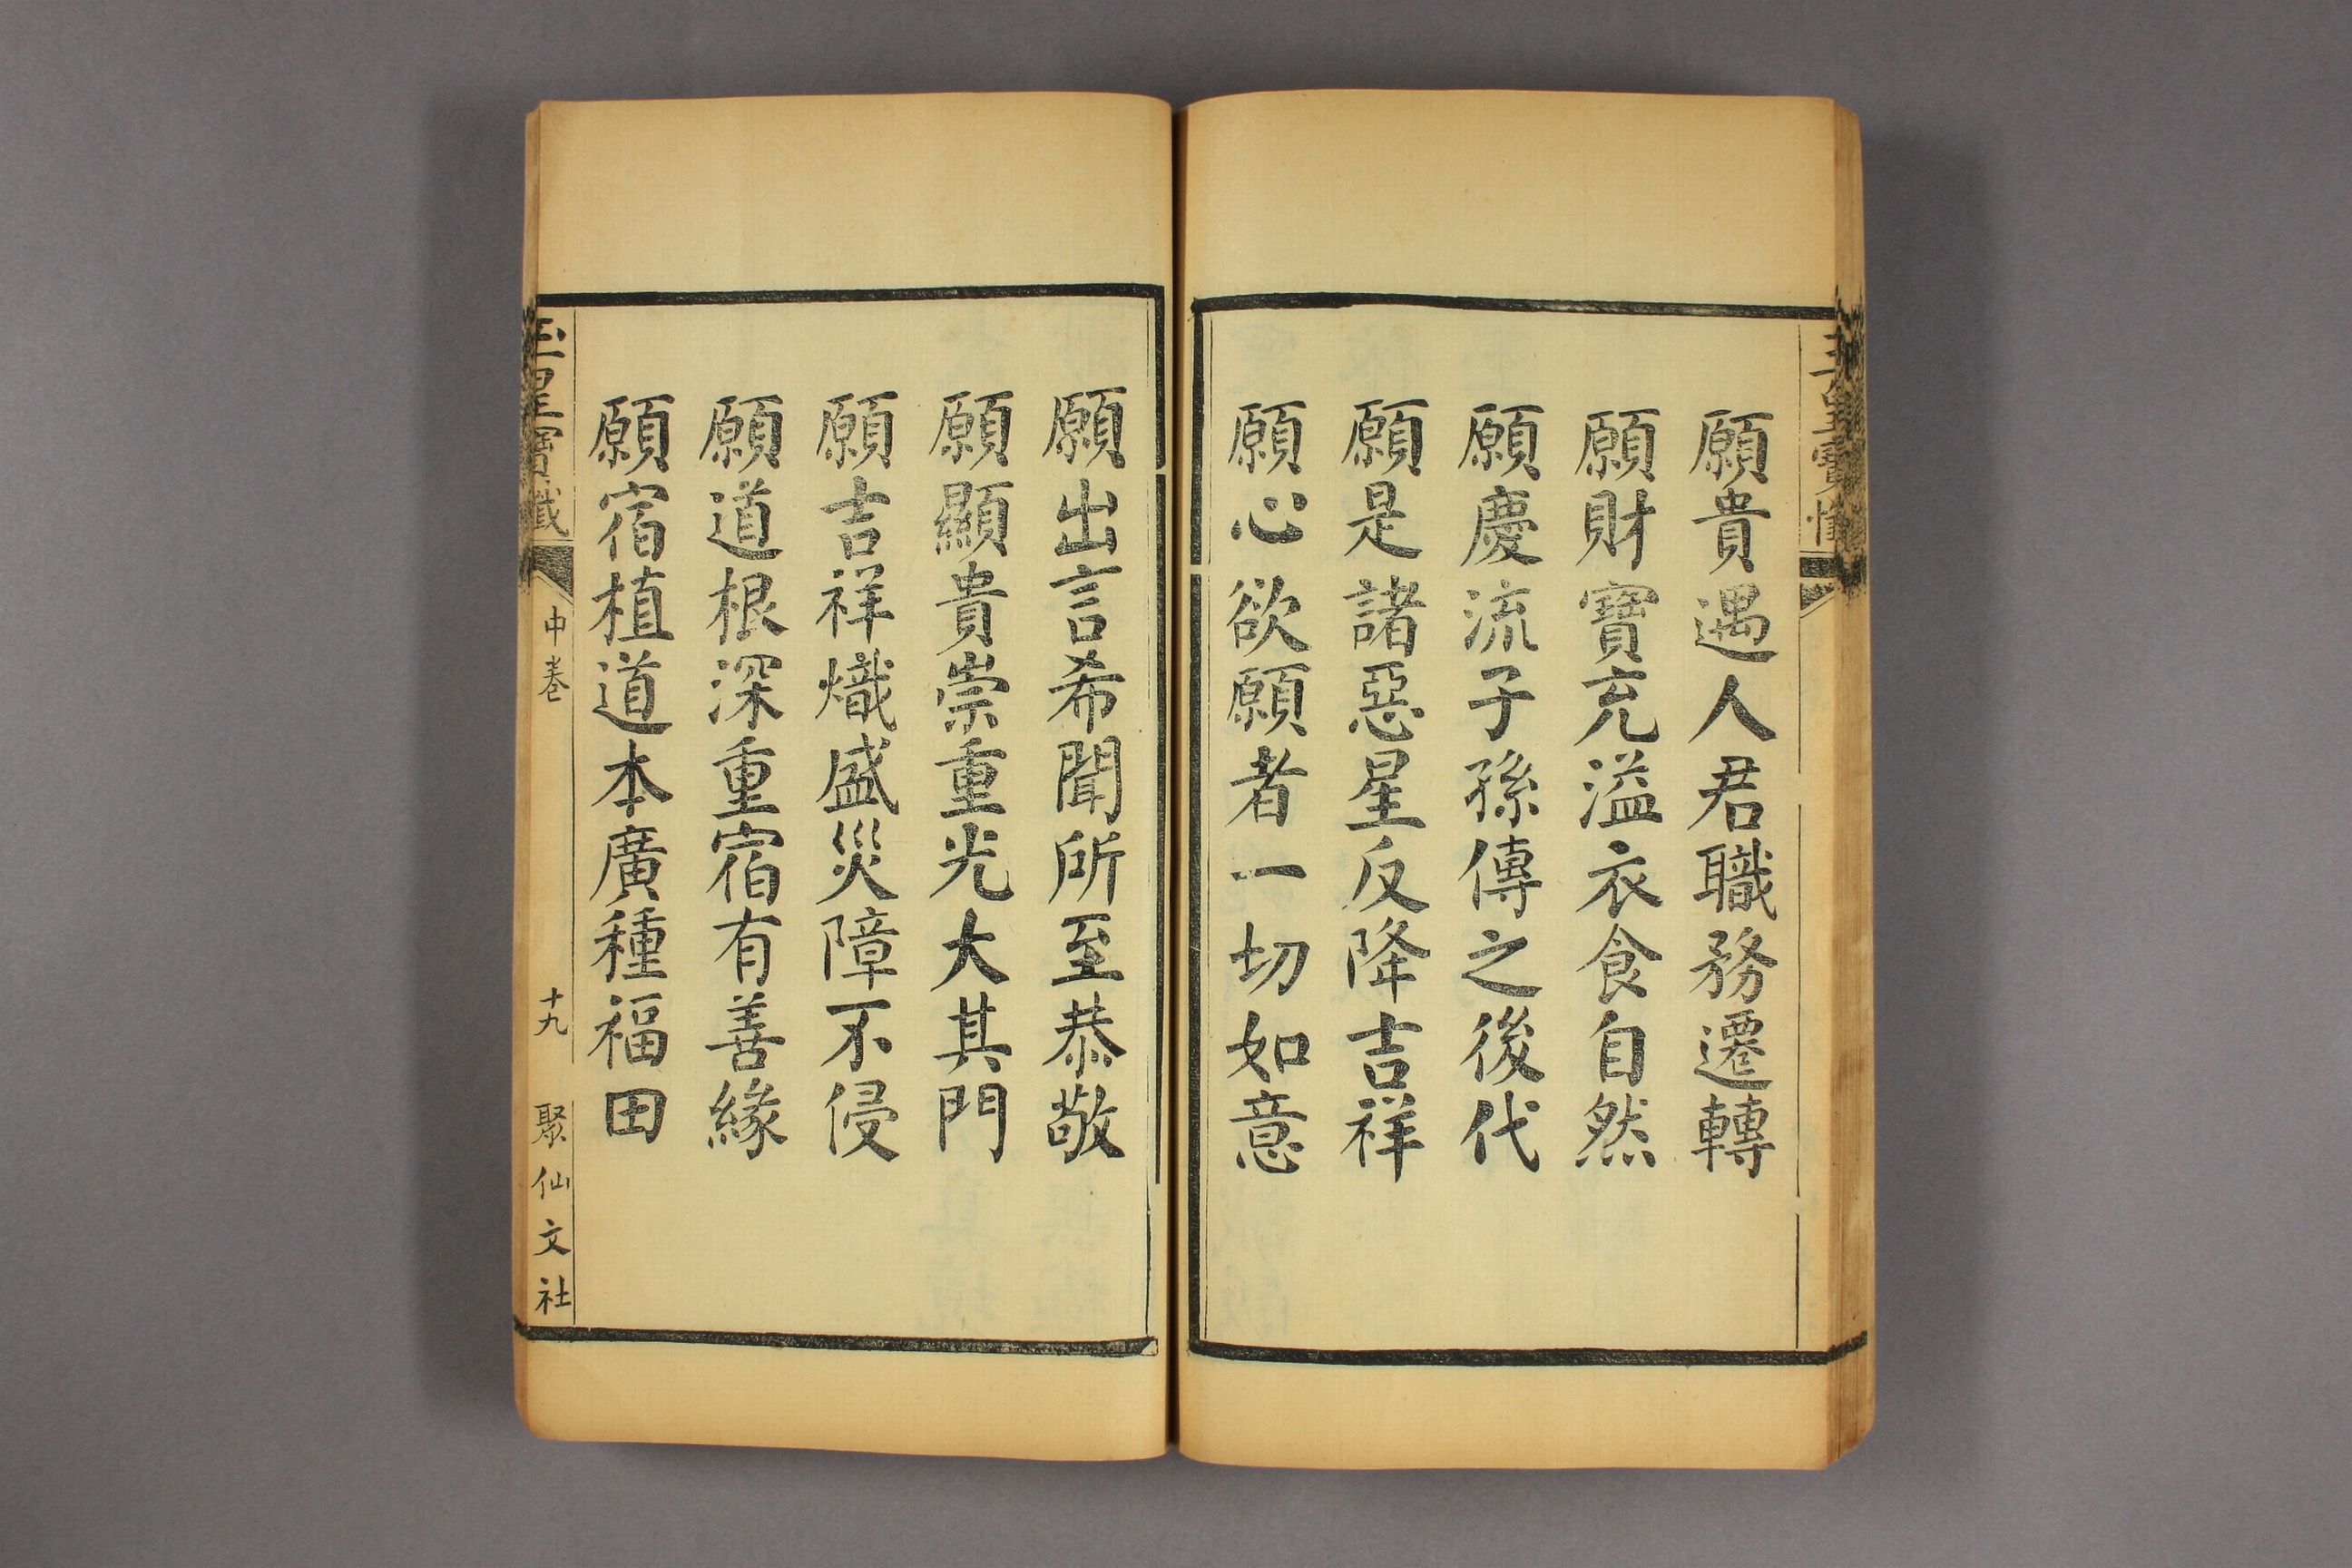 玉皇寶懺
願貴遇人君職務遷轉
願財寶充溢衣食自然
願慶流子孫傳之後代
願是諸惡星反降吉祥
願心欲願者一切如意
願出言希聞所至恭敬
願顯貴崇重光大其門
願吉祥熾盛災障不侵
願道根深重宿有善緣
願宿植道本廣種福田
玉皇寶懺
中卷
十九
聚仙文社